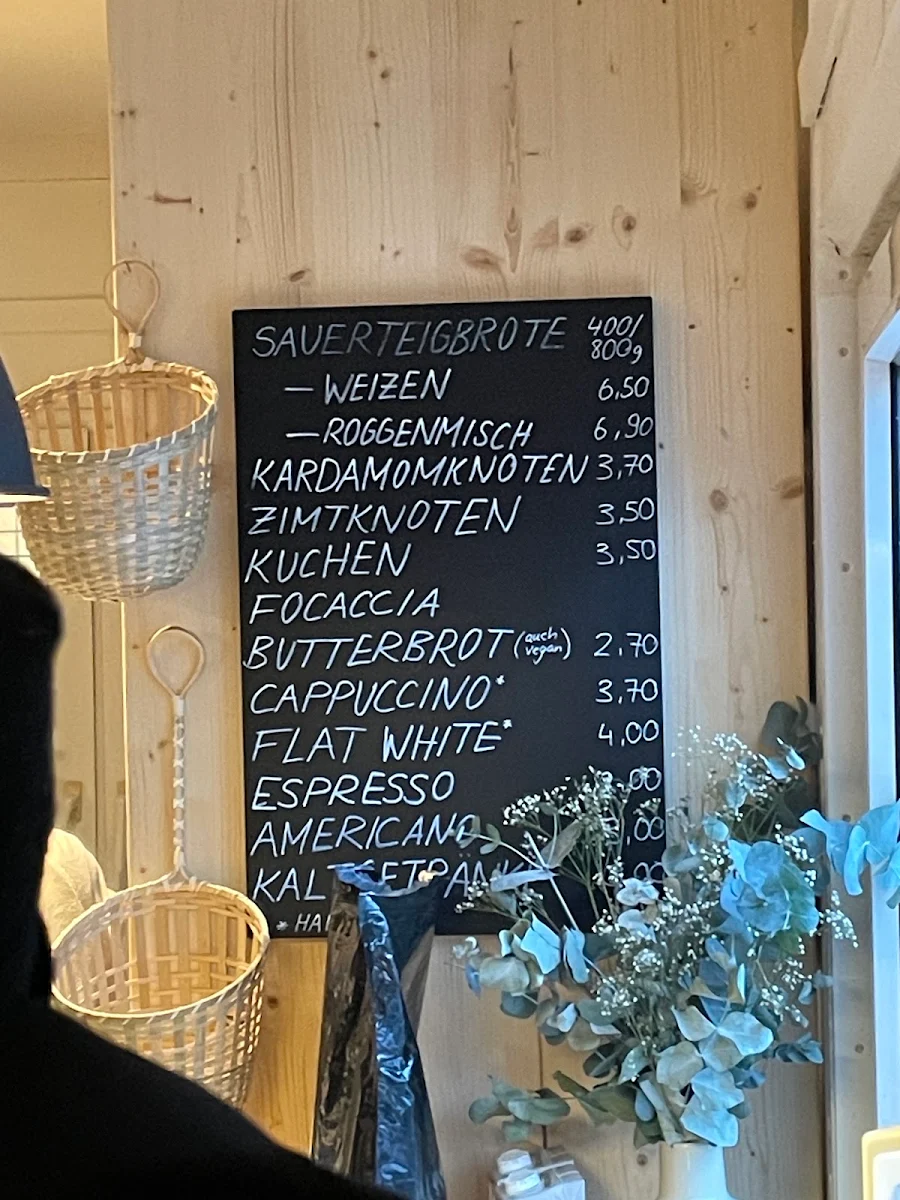 SAUERTEIGBROTE 400/
800g
— WEIZEN 6,50
— ROGGENMISCH 6,90
KARDAMOMKNOTEN 3,70
ZIMTKNOTEN 3,50
KUCHEN 3,50
FOCACCIA
BUTTERBROT (auch vegan) 2.70
CAPPUCCINO* 3,70
FLAT WHITE* 4,00
ESPRESSO
AMERICANO